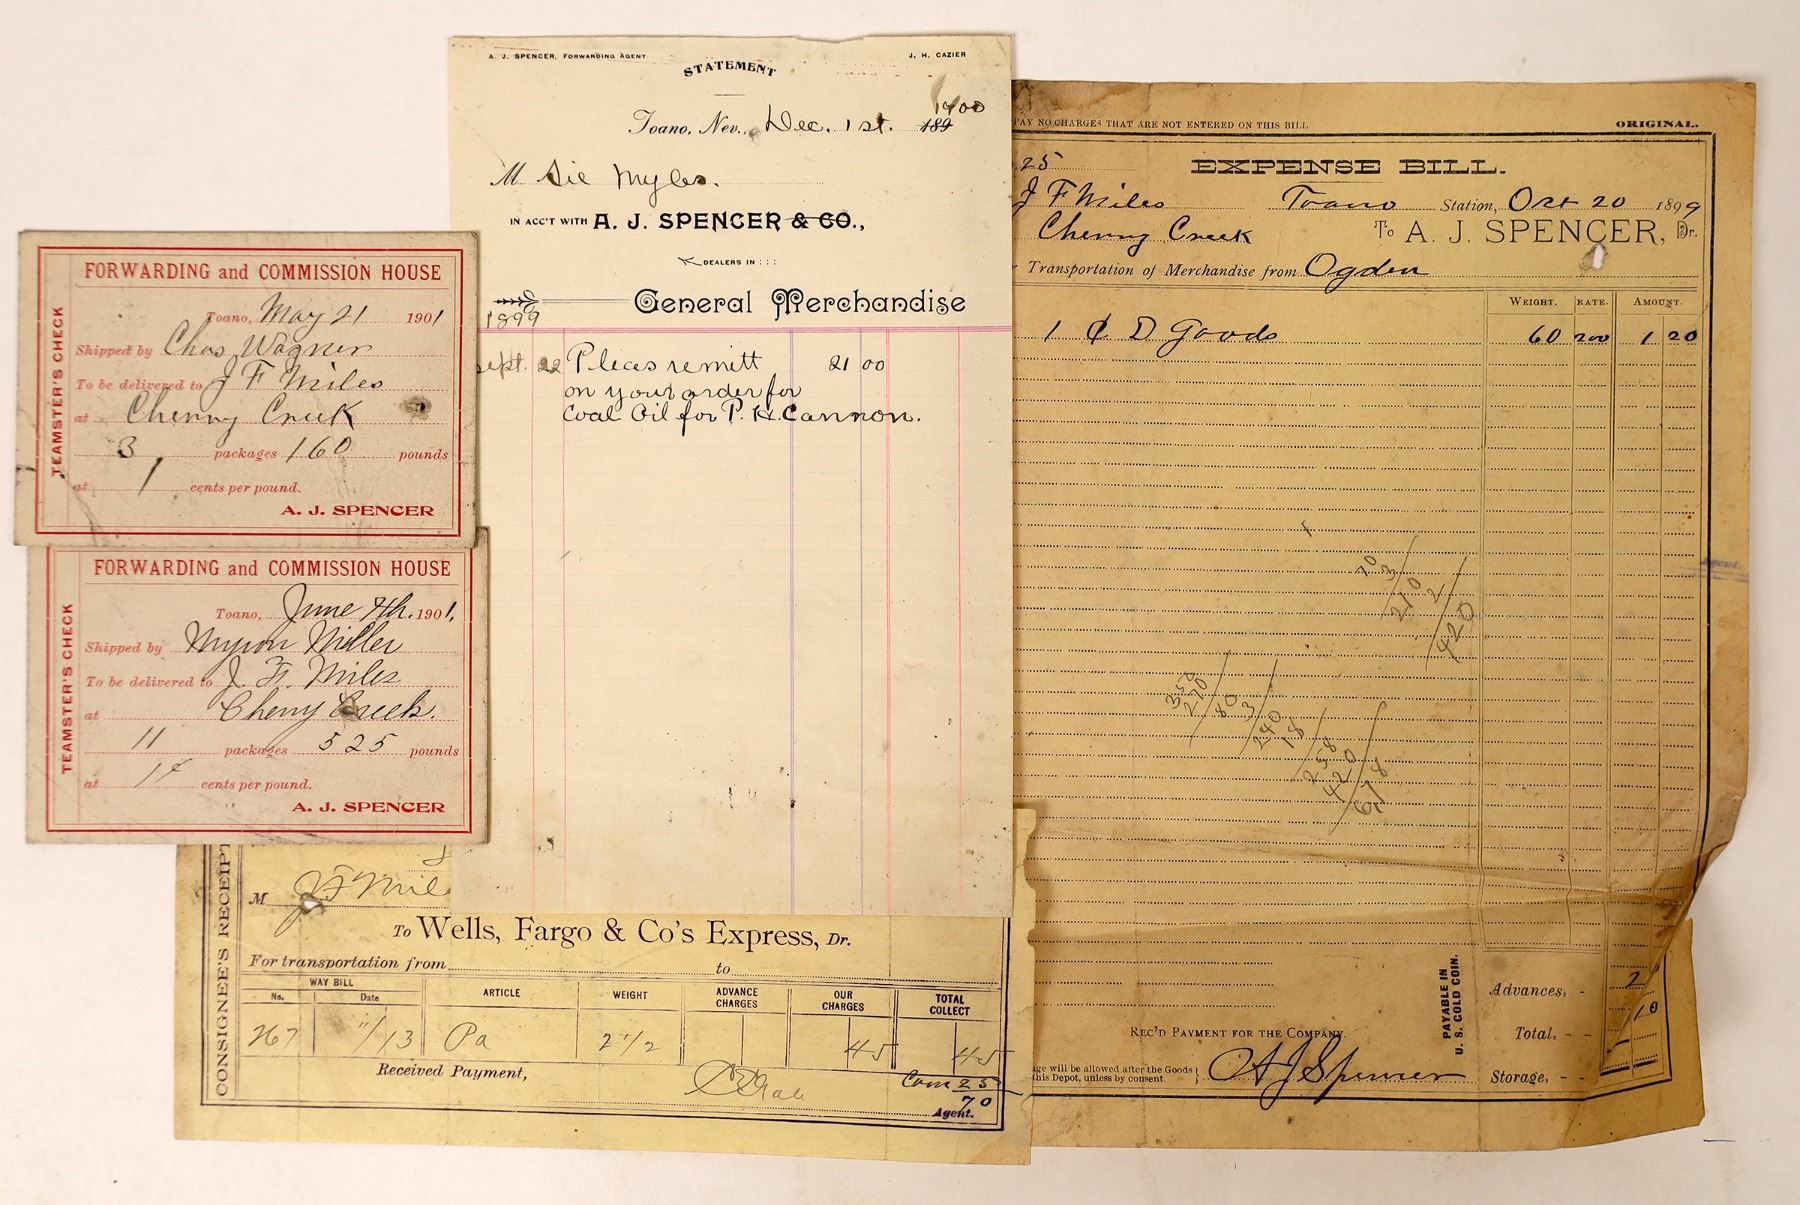 FORWARDING and COMMISSION HOUSE
TEAMSTER'S CHECK
Toano, May 21 1901
Shipped by Chas Wagner
To be delivered to J F Miles
at Cherry Creek
3 packages 160 pounds
at 1 cents per pound.
A. J. SPENCER
FORWARDING and COMMISSION HOUSE
TEAMSTER'S CHECK
Toano, June 7th. 1901,
Shipped by Myron Miller
To be delivered to J. F. Miles
at Cherry Creek.
11 packages 525 pounds
at 1¢ cents per pound.
A. J. SPENCER
A. J. SPENCER, FORWARDING AGENT J. H. CAZIER
STATEMENT
1900
Toano, Nev., Dec. 1st. 189
M Sie Myles.
IN ACC'T WITH A. J. SPENCER & CO.,
DEALERS IN : : :
General Merchandise
1899
Sept. 22 Pleas remitt 21 00
on your order for
Coal Oil for P. H. Cannon.
PAY NO CHARGES THAT ARE NOT ENTERED ON THIS BILL. ORIGINAL.
25 EXPENSE BILL.
J F Miles Toano Station, Oct 20 1899
Cherry Creek To A. J. SPENCER, Dr.
Transportation of Merchandise from Ogden
WEIGHT. RATE. AMOUNT.
1 C D Goods 60 200 1 20
70
3
210
2
420
250
270
80
3
240
18
258
420
678
Advances,
PAYABLE IN
U. S. GOLD COIN.
REC'D PAYMENT FOR THE COMPANY. Total,
ge will be allowed after the Goods
this Depot, unless by consent.
A J Spencer Storage,
Agent.
CONSIGNEE'S RECEIPT
M J F Mil
To Wells, Fargo & Co's Express, Dr.
For transportation from to
WAY BILL ARTICLE WEIGHT ADVANCE CHARGES OUR CHARGES TOTAL COLLECT
No. Date
267 11/13 Pa 2 1/2 45 45
Received Payment, Com 25
70
Agent.